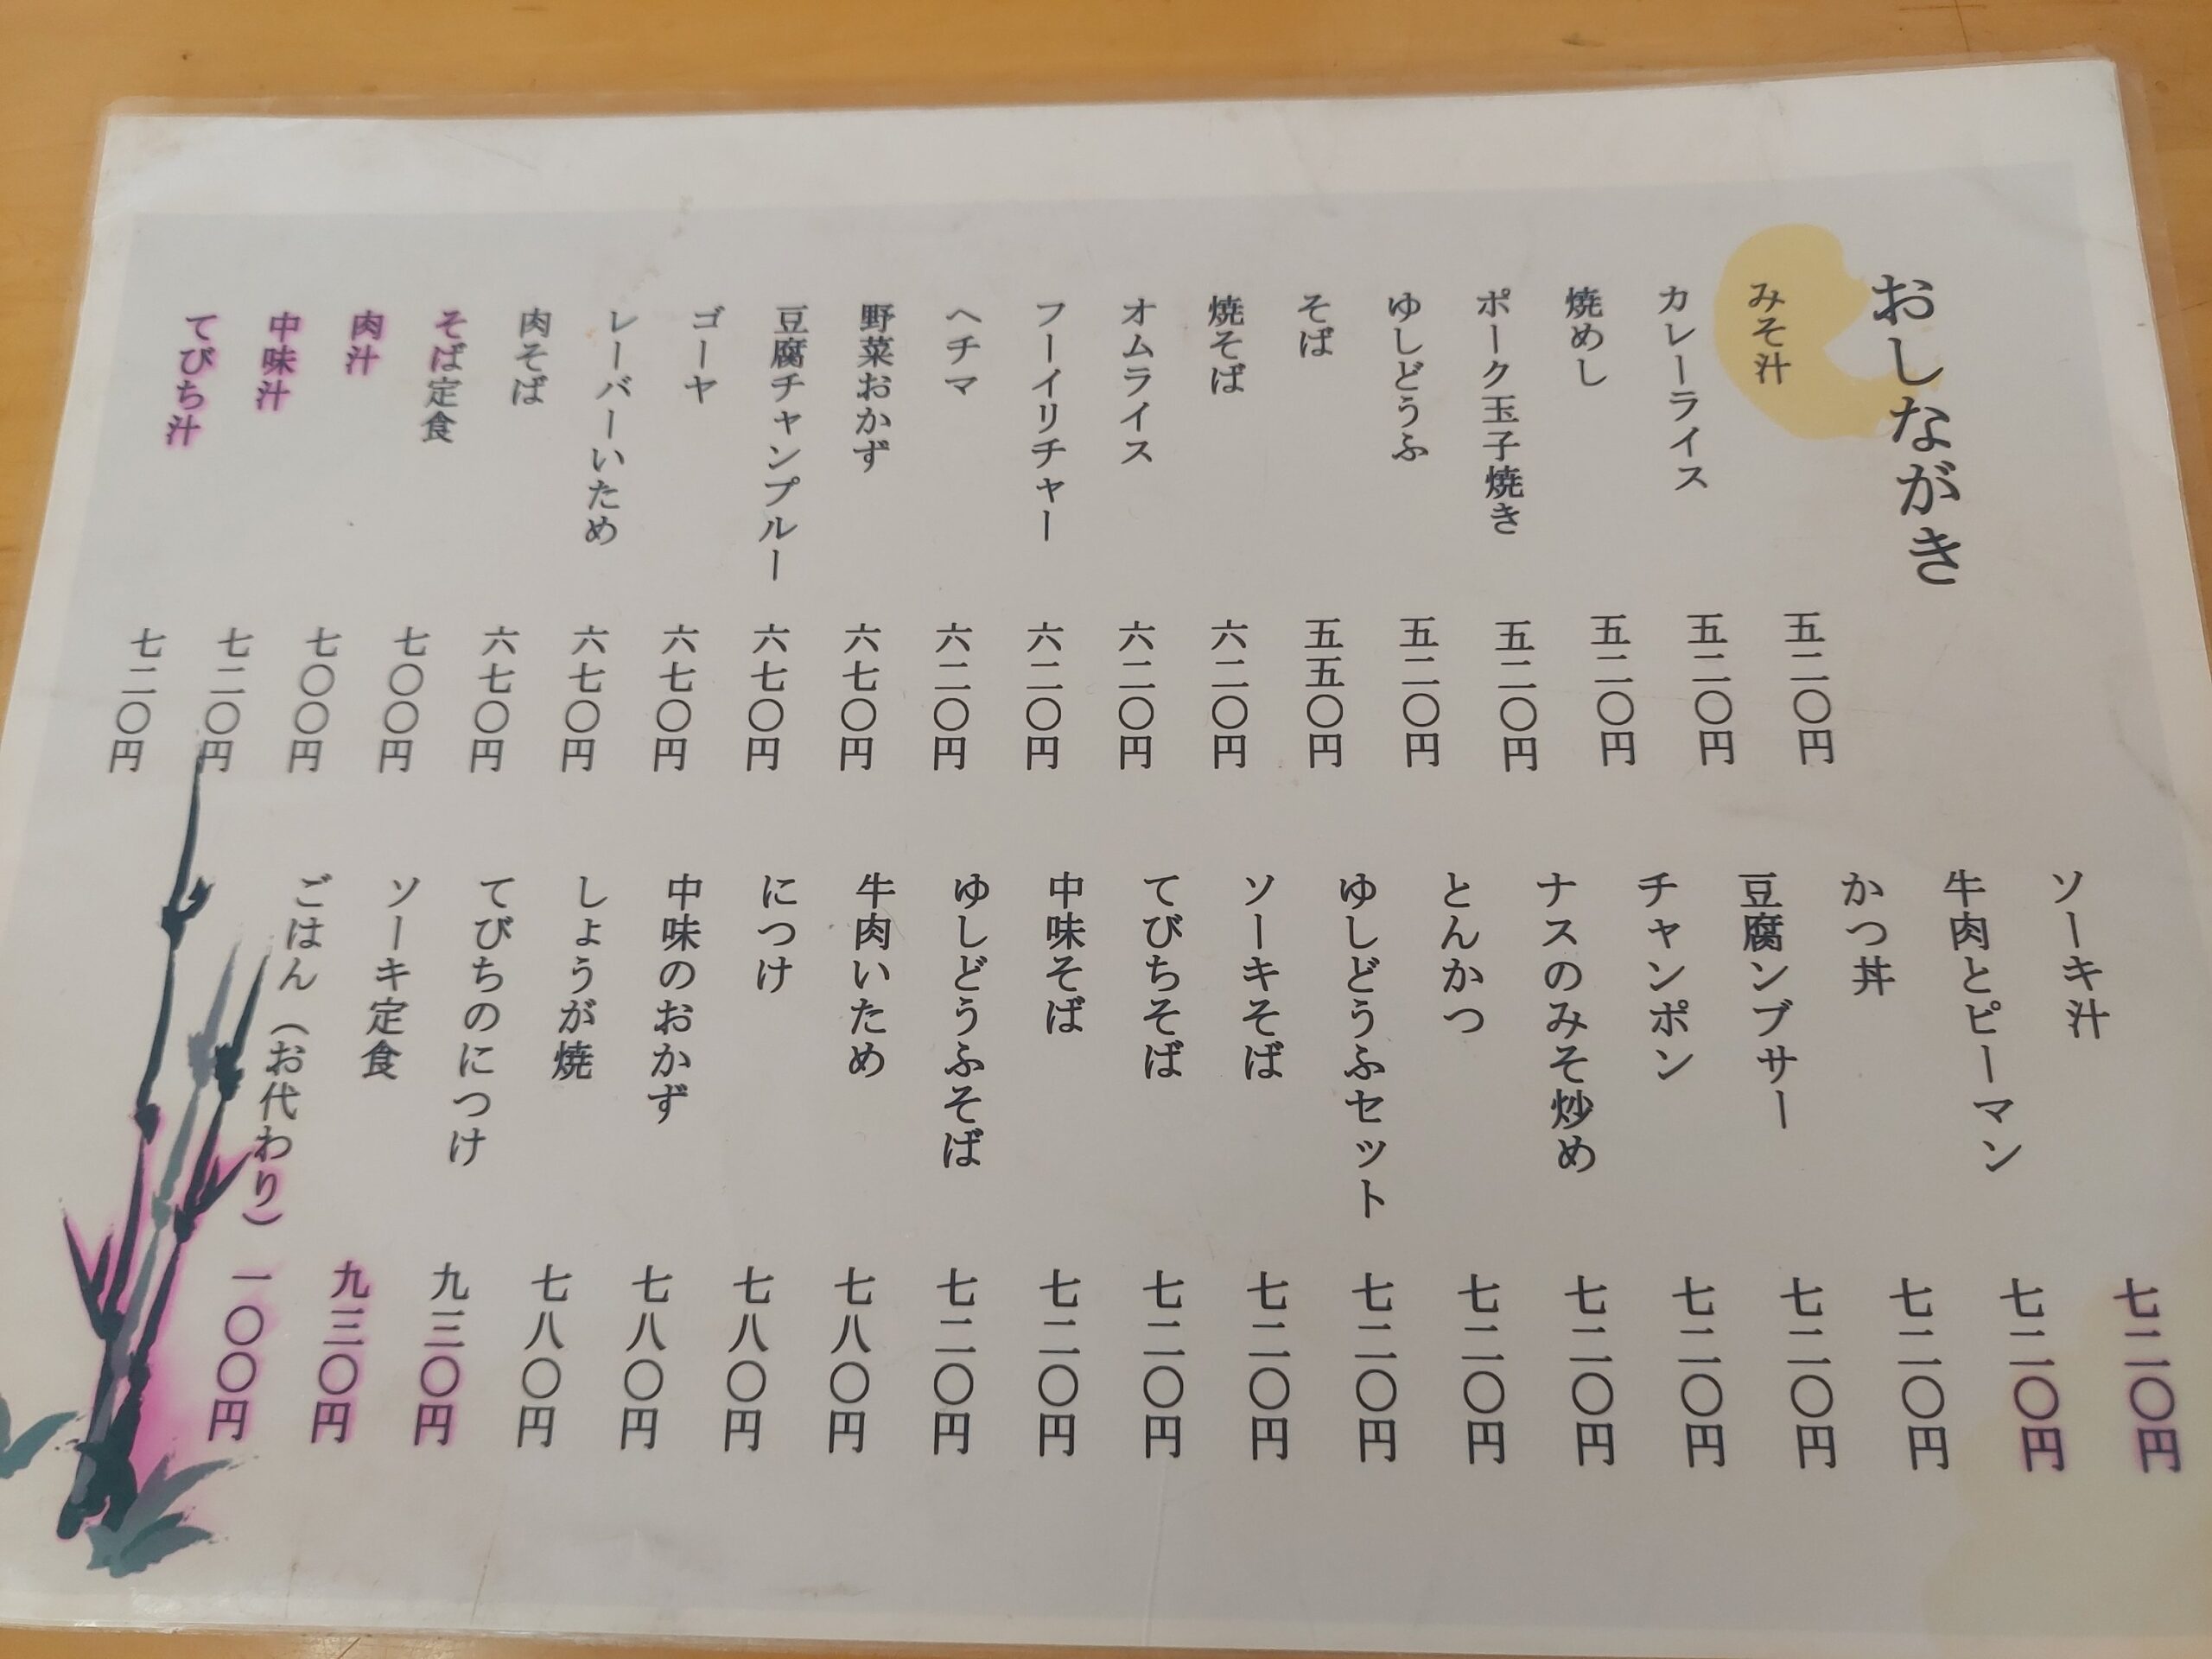 おしながき
みそ汁 五二〇円
カレーライス 五二〇円
焼めし 五二〇円
ポーク玉子焼き 五二〇円
ゆしどうふ 五二〇円
そば 五五〇円
焼そば 六二〇円
オムライス 六二〇円
フーイリチャー 六二〇円
ヘチマ 六二〇円
野菜おかず 六七〇円
豆腐チャンプルー 六七〇円
ゴーヤ 六七〇円
レーバーいため 六七〇円
肉そば 六七〇円
そば定食 七〇〇円
肉汁 七〇〇円
中味汁 七二〇円
てびち汁 七二〇円
ソーキ汁 七二〇円
牛肉とピーマン 七二〇円
かつ丼 七二〇円
豆腐ンブサー 七二〇円
チャンポン 七二〇円
ナスのみそ炒め 七二〇円
とんかつ 七二〇円
ゆしどうふセット 七二〇円
ソーキそば 七二〇円
てびちそば 七二〇円
中味そば 七二〇円
ゆしどうふそば 七二〇円
牛肉いため 七八〇円
につけ 七八〇円
中味のおかず 七八〇円
しょうが焼 七八〇円
てびちのにつけ 九三〇円
ソーキ定食 九三〇円
ごはん（お代わり） 一〇〇円